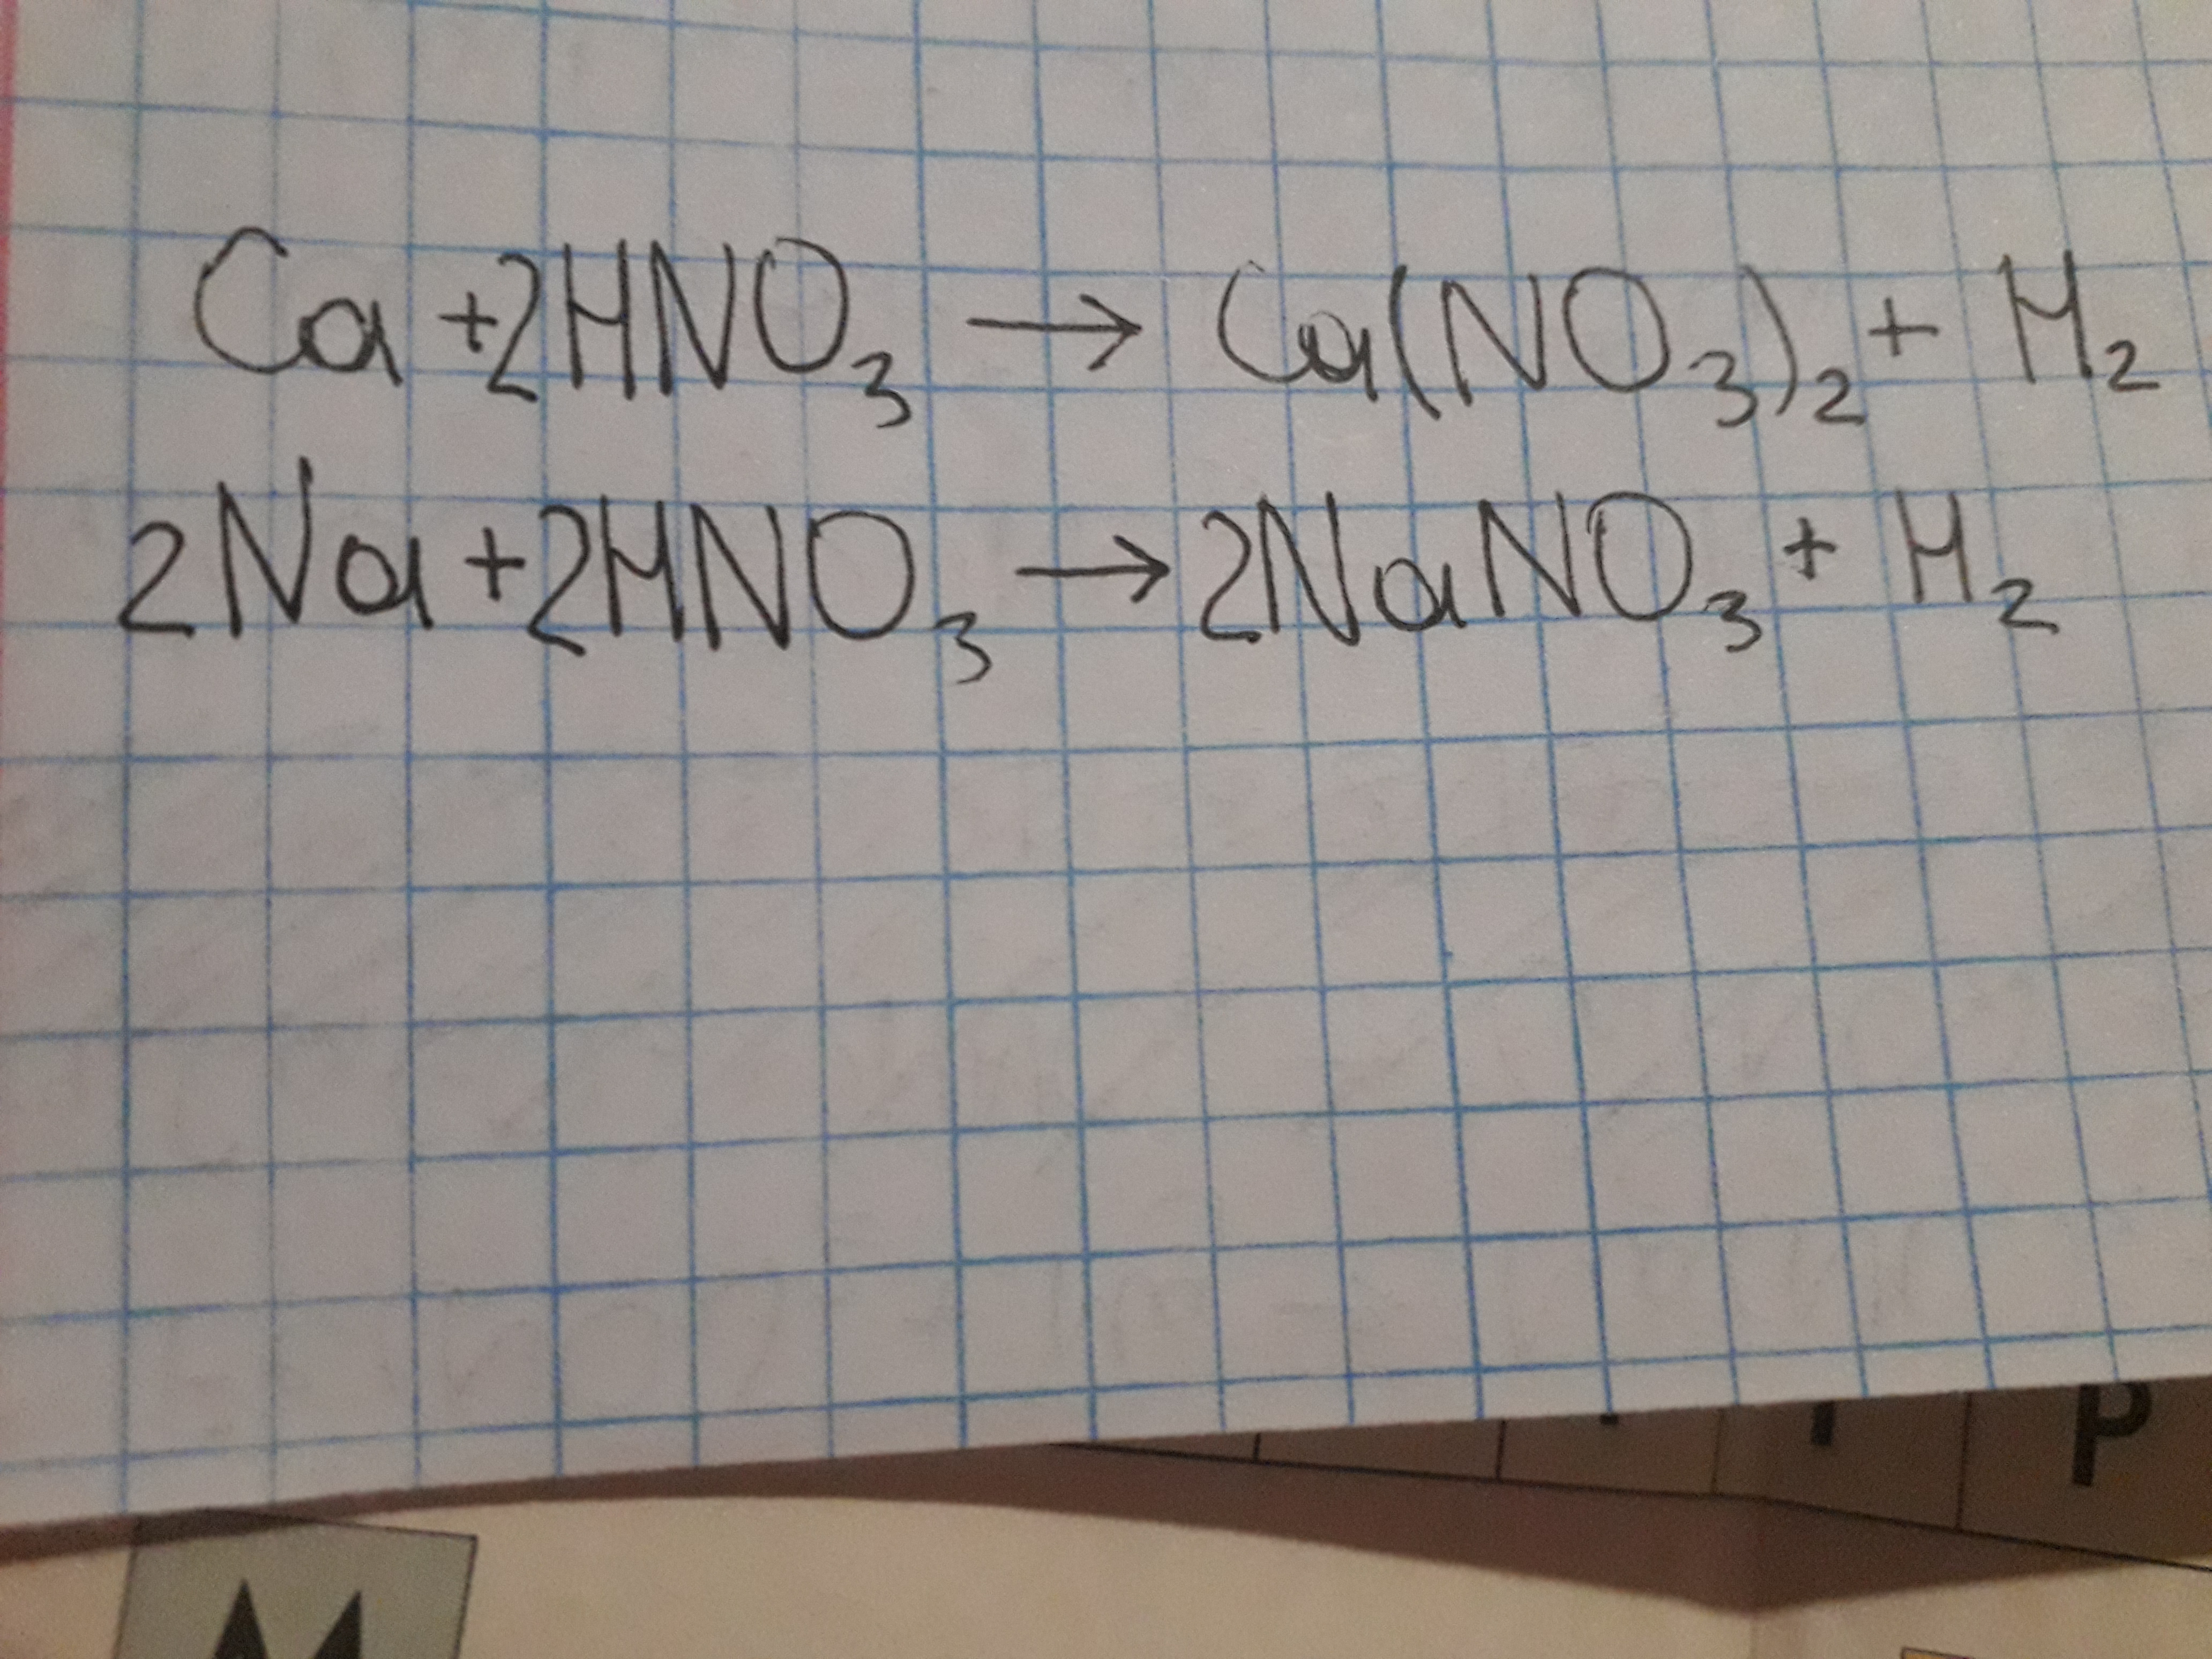 Ca +2HNO₃ → Ca(NO₃)₂ + H₂
2Na+2HNO₃ → 2NaNO₃ + H₂
P
M